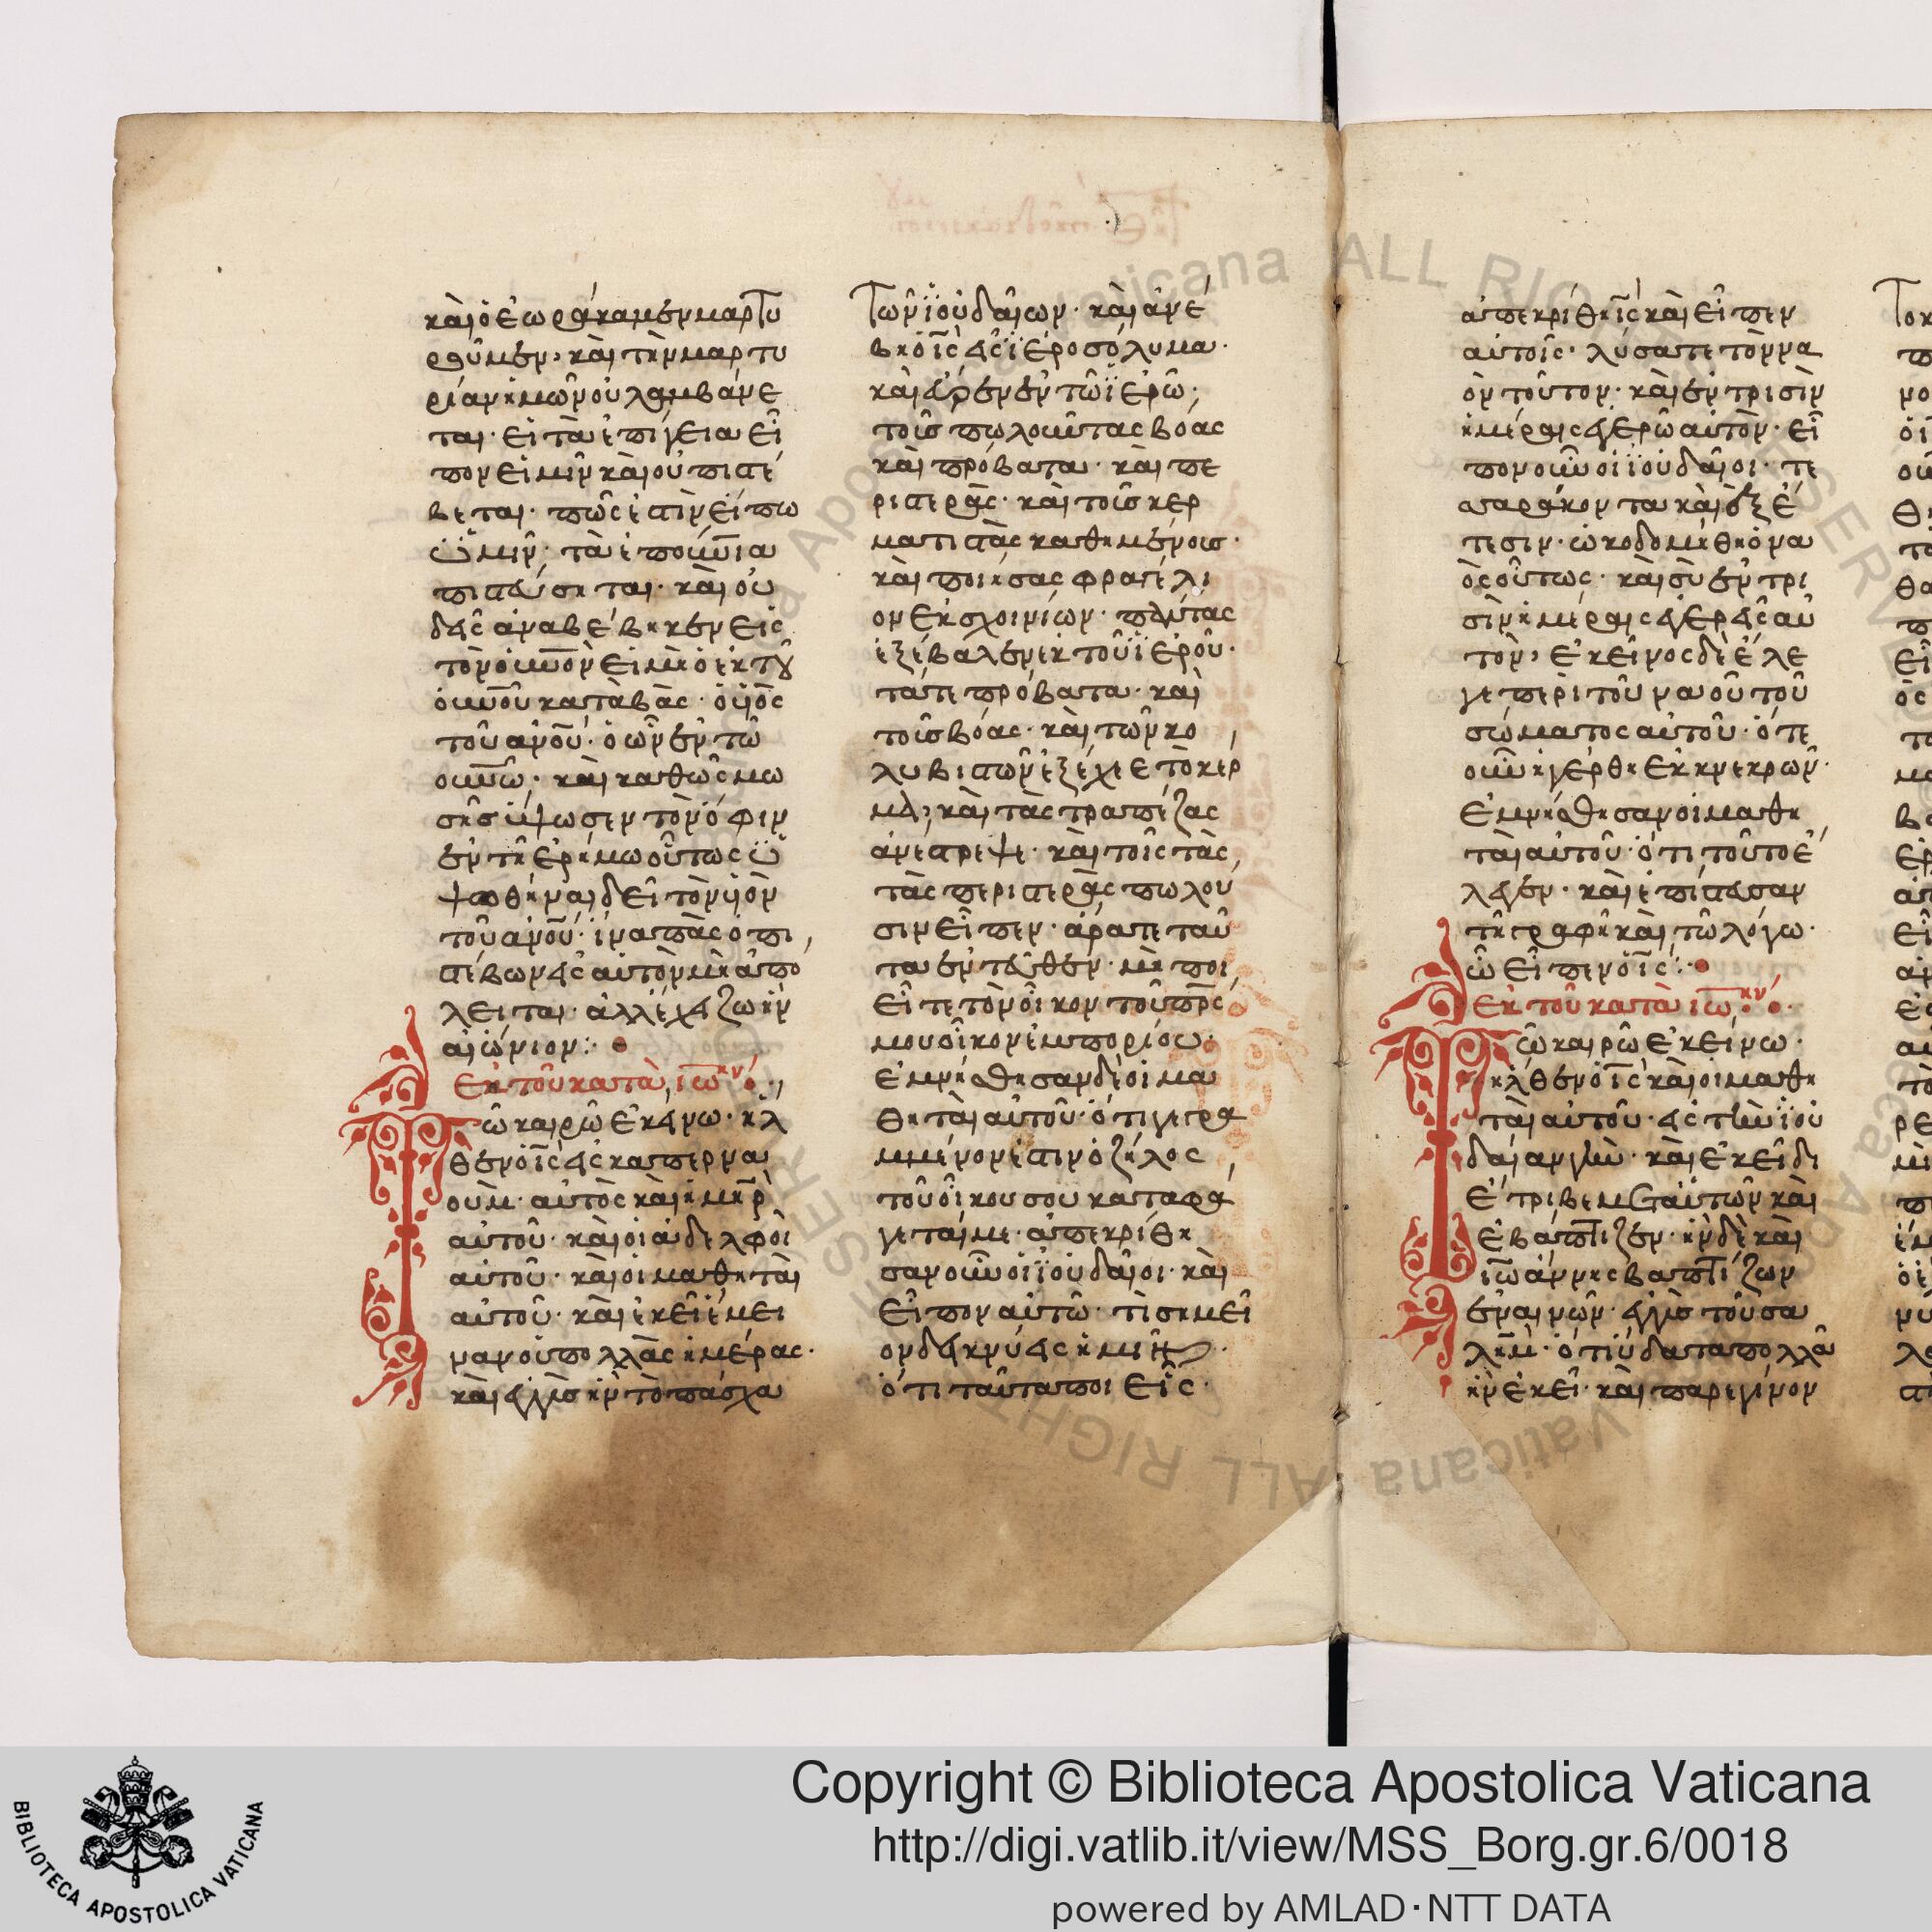 καὶ ὃ ἑωράκαμεν μαρτυ
ροῦμεν· καὶ τὴν μαρτυ
ρίαν ἡμῶν οὐ λαμβάνε
ται· εἰ τὰ ἐπίγεια εἶ
πον εἰμῖν καὶ οὐ πιστέ
βεται· πῶς ἐστὶν εἴπω
ὑμῖν· τὰ ἐπουνια
πιστεύσηται· καὶ οὐ
δεὶς ἀναβέβηκεν εἰς
τὸν οὐνον εἰ μὴ ὁ ἐκ τοῦ
οὐνου καταβὰς· ὁ υἱὸς
τοῦ ανου· ὁ ὢν ἐν τῶ
ουνω· καὶ καθὼς μω
σῆς ὕψωσεν τὸν ὄφιν
ἐν τῆ ἐρήμω οὕτως ὑ
ψωθῆναι δεῖ τὸν υἱὸν
τοῦ ανου· ἵνα πᾶς ὁ πι
στέβων εἰς αὐτὸν μὴ ἀπό
λειται· ἀλλ' ἔχει ζωὴν
αἰώνιον:·
Ἐκ τοῦ κατὰ ιω
Τῶ καιρῶ ἐκείνω· ἦλ
θεν ὁ ις εἰς καπερνα
ουμ· αὐτὸς καὶ ἡ μηρ
αὐτοῦ· καὶ οἱ ἀδελφοὶ
αὐτοῦ· καὶ οἱ μαθηταὶ
αὐτοῦ· καὶ ἐκεῖ ἔμει
ναν οὐ πολλὰς ἡμέρας·
καὶ ἐγγὺς ἦν τὸ πάσχα
Τῶν ϊουδαίων· καὶ ἀνέ
βη ὁ ις εἰς ϊεροσόλυμα·
καὶ εὗρεν ἐν τῶ ϊερῶ·
τοὺς πωλοῦντας βόας
καὶ πρόβατα· καὶ πε
ριστερὰς· καὶ τοὺς κερ
ματιστὰς καθημένους·
καὶ ποιήσας φραγέλι
ον ἐκ σχοινίων· πάντας
ἐξέβαλεν ἐκ τοῦ ϊεροῦ·
τά τε πρόβατα· καὶ
τοὺς βόας· καὶ τῶν κο
λυβιστῶν ἐξέχεε τὸ κέρ
μα, καὶ τὰς τραπέζας
ἀνέστρεψε· καὶ τοῖς τὰς
τὰς περιστερὰς πωλού
σιν εἶπεν· ἄρατε ταῦ
τα ἐντεῦθεν· μὴ ποι
εῖτε τὸν οἶκον τοῦ πρς
μου οἶκον ἐμπορίου·
ἐμνήσθησαν δὲ οἱ μα
θηταὶ αὐτοῦ· ὅτι γεγρα
μμένον ἐστιν ὁ ζῆλος
τοῦ οἴκου σου καταφά
γεταί με· ἀπεκρίθη
σαν οὖν οἱ ϊουδαῖοι· καὶ
εἶπον αὐτῶ· τί σημεῖ
ον δεικνύεις ἡμῖν·
ὅτι ταῦτα ποιεῖς·
ἀπεκρίθη ις καὶ εἶπεν
αὐτοῖς· λύσατε τὸν να
ὸν τοῦτον· καὶ ἐν τρισὶν
ἡμέραις ἐγερῶ αὐτὸν· εἶ
πον οὖν οἱ ϊουδαῖοι· τε
σσαράκοντα καὶ ἓξ ἔ
τεσιν· ὠκοδομήθη ὁ να
ὸς οὗτως· καὶ σὺ ἐν τρι
σὶν ἡμέραις ἐγερεῖς αὐ
τὸν, ἐκεῖνος δὲ ἔλε
γε περὶ τοῦ ναοῦ τοῦ
σώματος αὐτοῦ· ὅτε
οὖν ἠγέρθη ἐκ νεκρῶν·
ἐμνήσθησαν οἱ μαθη
ταὶ αὐτοῦ· ὅτι τοῦτο ἔ
λεγεν· καὶ ἐπίστευσαν
τῆ γραφῆ καὶ τῶ λόγω·
ὧ εἶπεν ὁ ις:·
Ἐκ τοῦ κατὰ ιω
Τῶ καιρῶ ἐκείνω·
ἦλθεν ὁ ις καὶ οἱ μαθη
ταὶ αὐτοῦ· εἰς τὴν ϊου
δαίαν γῆν· καὶ ἐκεῖ δι
έτριβε μετ' αὐτῶν καὶ
ἐβάπτιζεν· ἦν δὲ καὶ
ιωάννης βαπτίζων
ἐν αινὼν· ἐγγὺς τοῦ σα
λημ· ὅτι ὕδατα πολλὰ
ἦν ἐκεῖ· καὶ παρεγίνον
Copyright © Biblioteca Apostolica Vaticana
http://digi.vatlib.it/view/MSS_Borg.gr.6/0018
powered by AMLAD·NTT DATA
BIBLIOTECA APOSTOLICA VATICANA